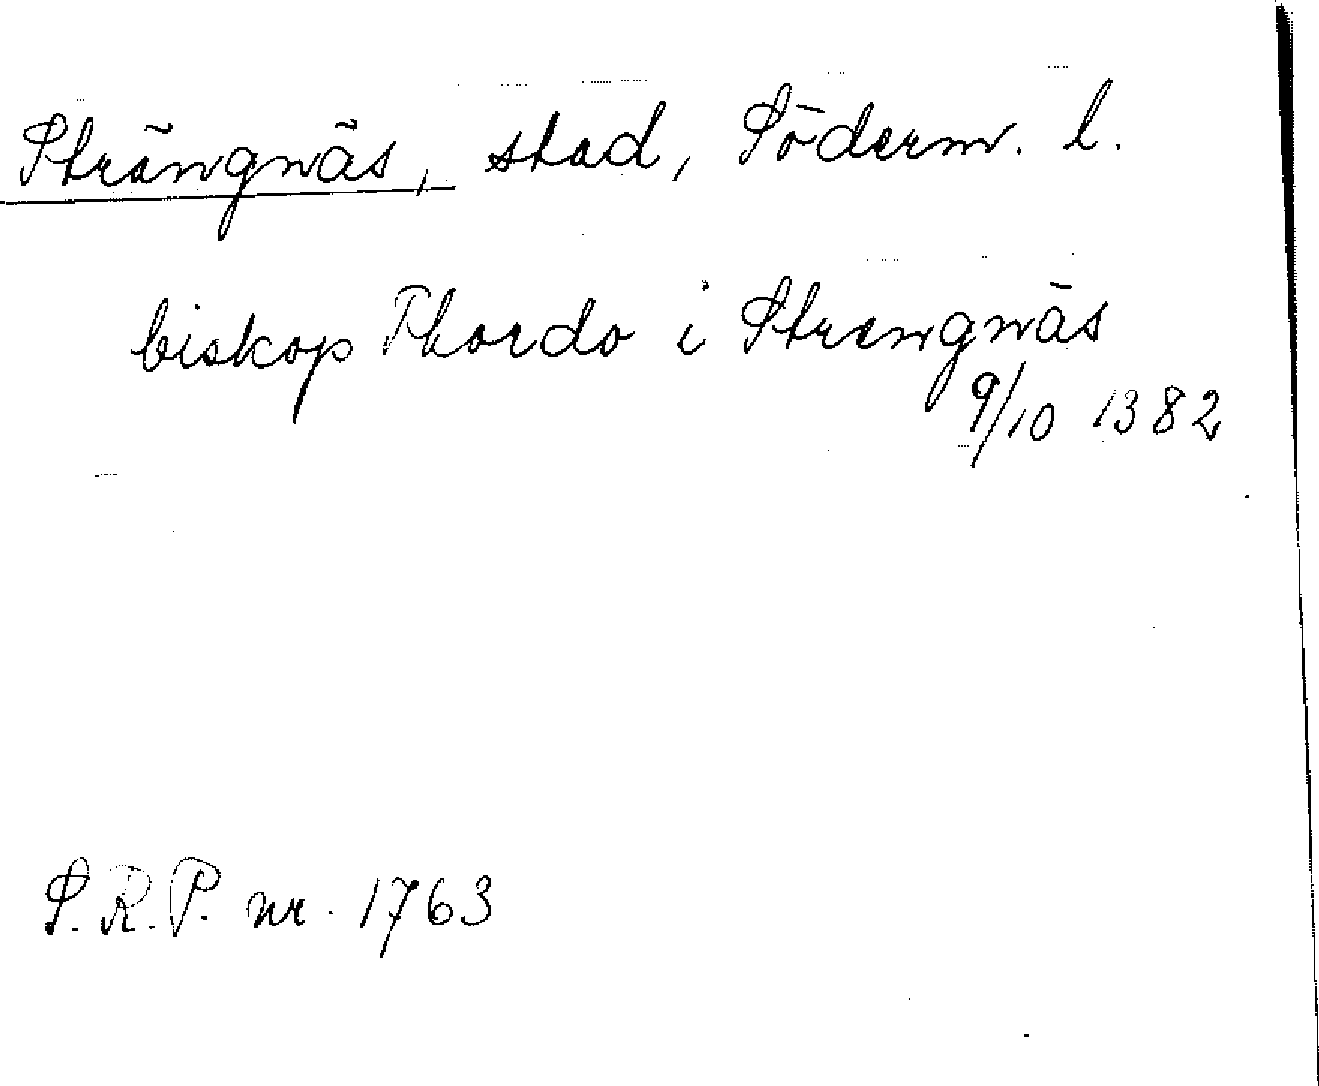 Strängnäs, stad, Söderm. l.
biskop Thordo i Strengnäs
9/10 1382
S.R.P. nr. 1763